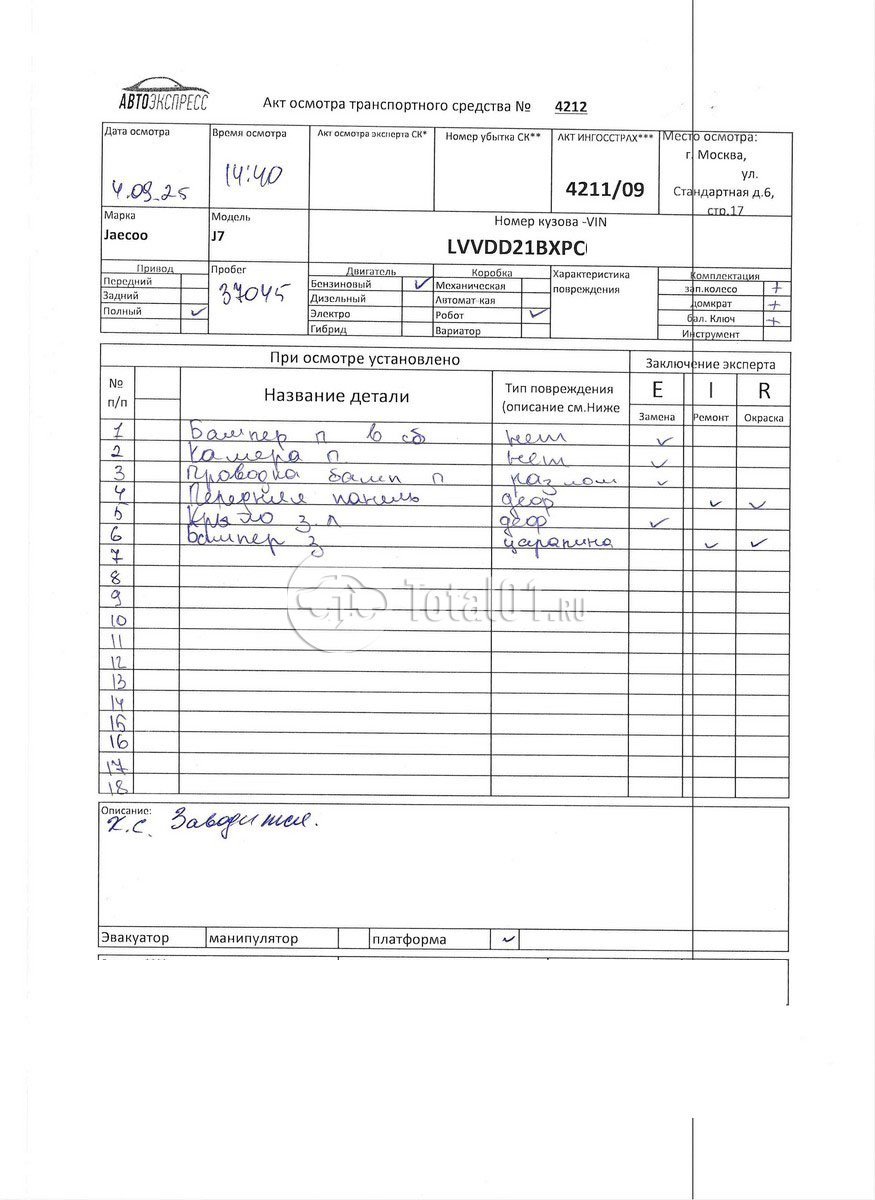 АВТОЭКСПРЕСС
Акт осмотра транспортного средства № 4212
Дата осмотра
4.09.25
Время осмотра
14:40
Акт осмотра эксперта СК*
Номер убытка СК**
АКТ ИНГОССТРАХ***
4211/09
Место осмотра:
г. Москва,
ул.
Стандартная д.6,
стр.17
Марка
Jaecoo
Модель
J7
Номер кузова -VIN
LVVDD21BXPC
Привод
Передний
Задний
Полный ✓
Пробег
37045
Двигатель
Бензиновый ✓
Дизельный
Электро
Гибрид
Коробка
Механическая
Автомат кая
Робот ✓
Вариатор
Характеристика
повреждения
Комплектация
зап.колесо +
домкрат +
бал. Ключ +
Инструмент
При осмотре установлено
Заключение эксперта
№
п/п
Название детали
Тип повреждения
(описание см.Ниже
E I R
Замена Ремонт Окраска
1 Бампер п в сб нет ✓
2 Камера п нет ✓
3 Проводка бамп п разлом ✓
4 Передняя панель деор ✓ ✓
5 Крыло з л деор ✓
6 Бампер з царапина ✓ ✓
7
8
9
10
11
12
13
14
15
16
17
18
Total01.RU
Описание:
Х.С. Заводится.
Эвакуатор манипулятор платформа ✓